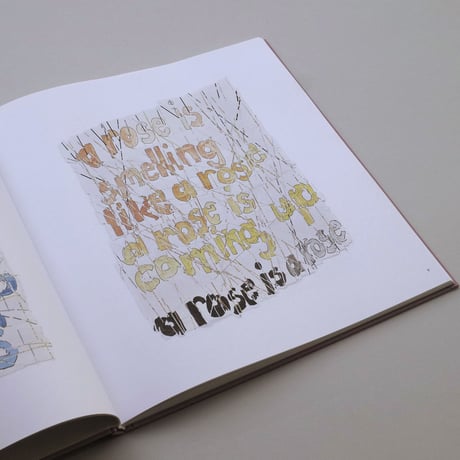 a rose is
smelling
like a rose
a rose is
coming up
a rose is a rose